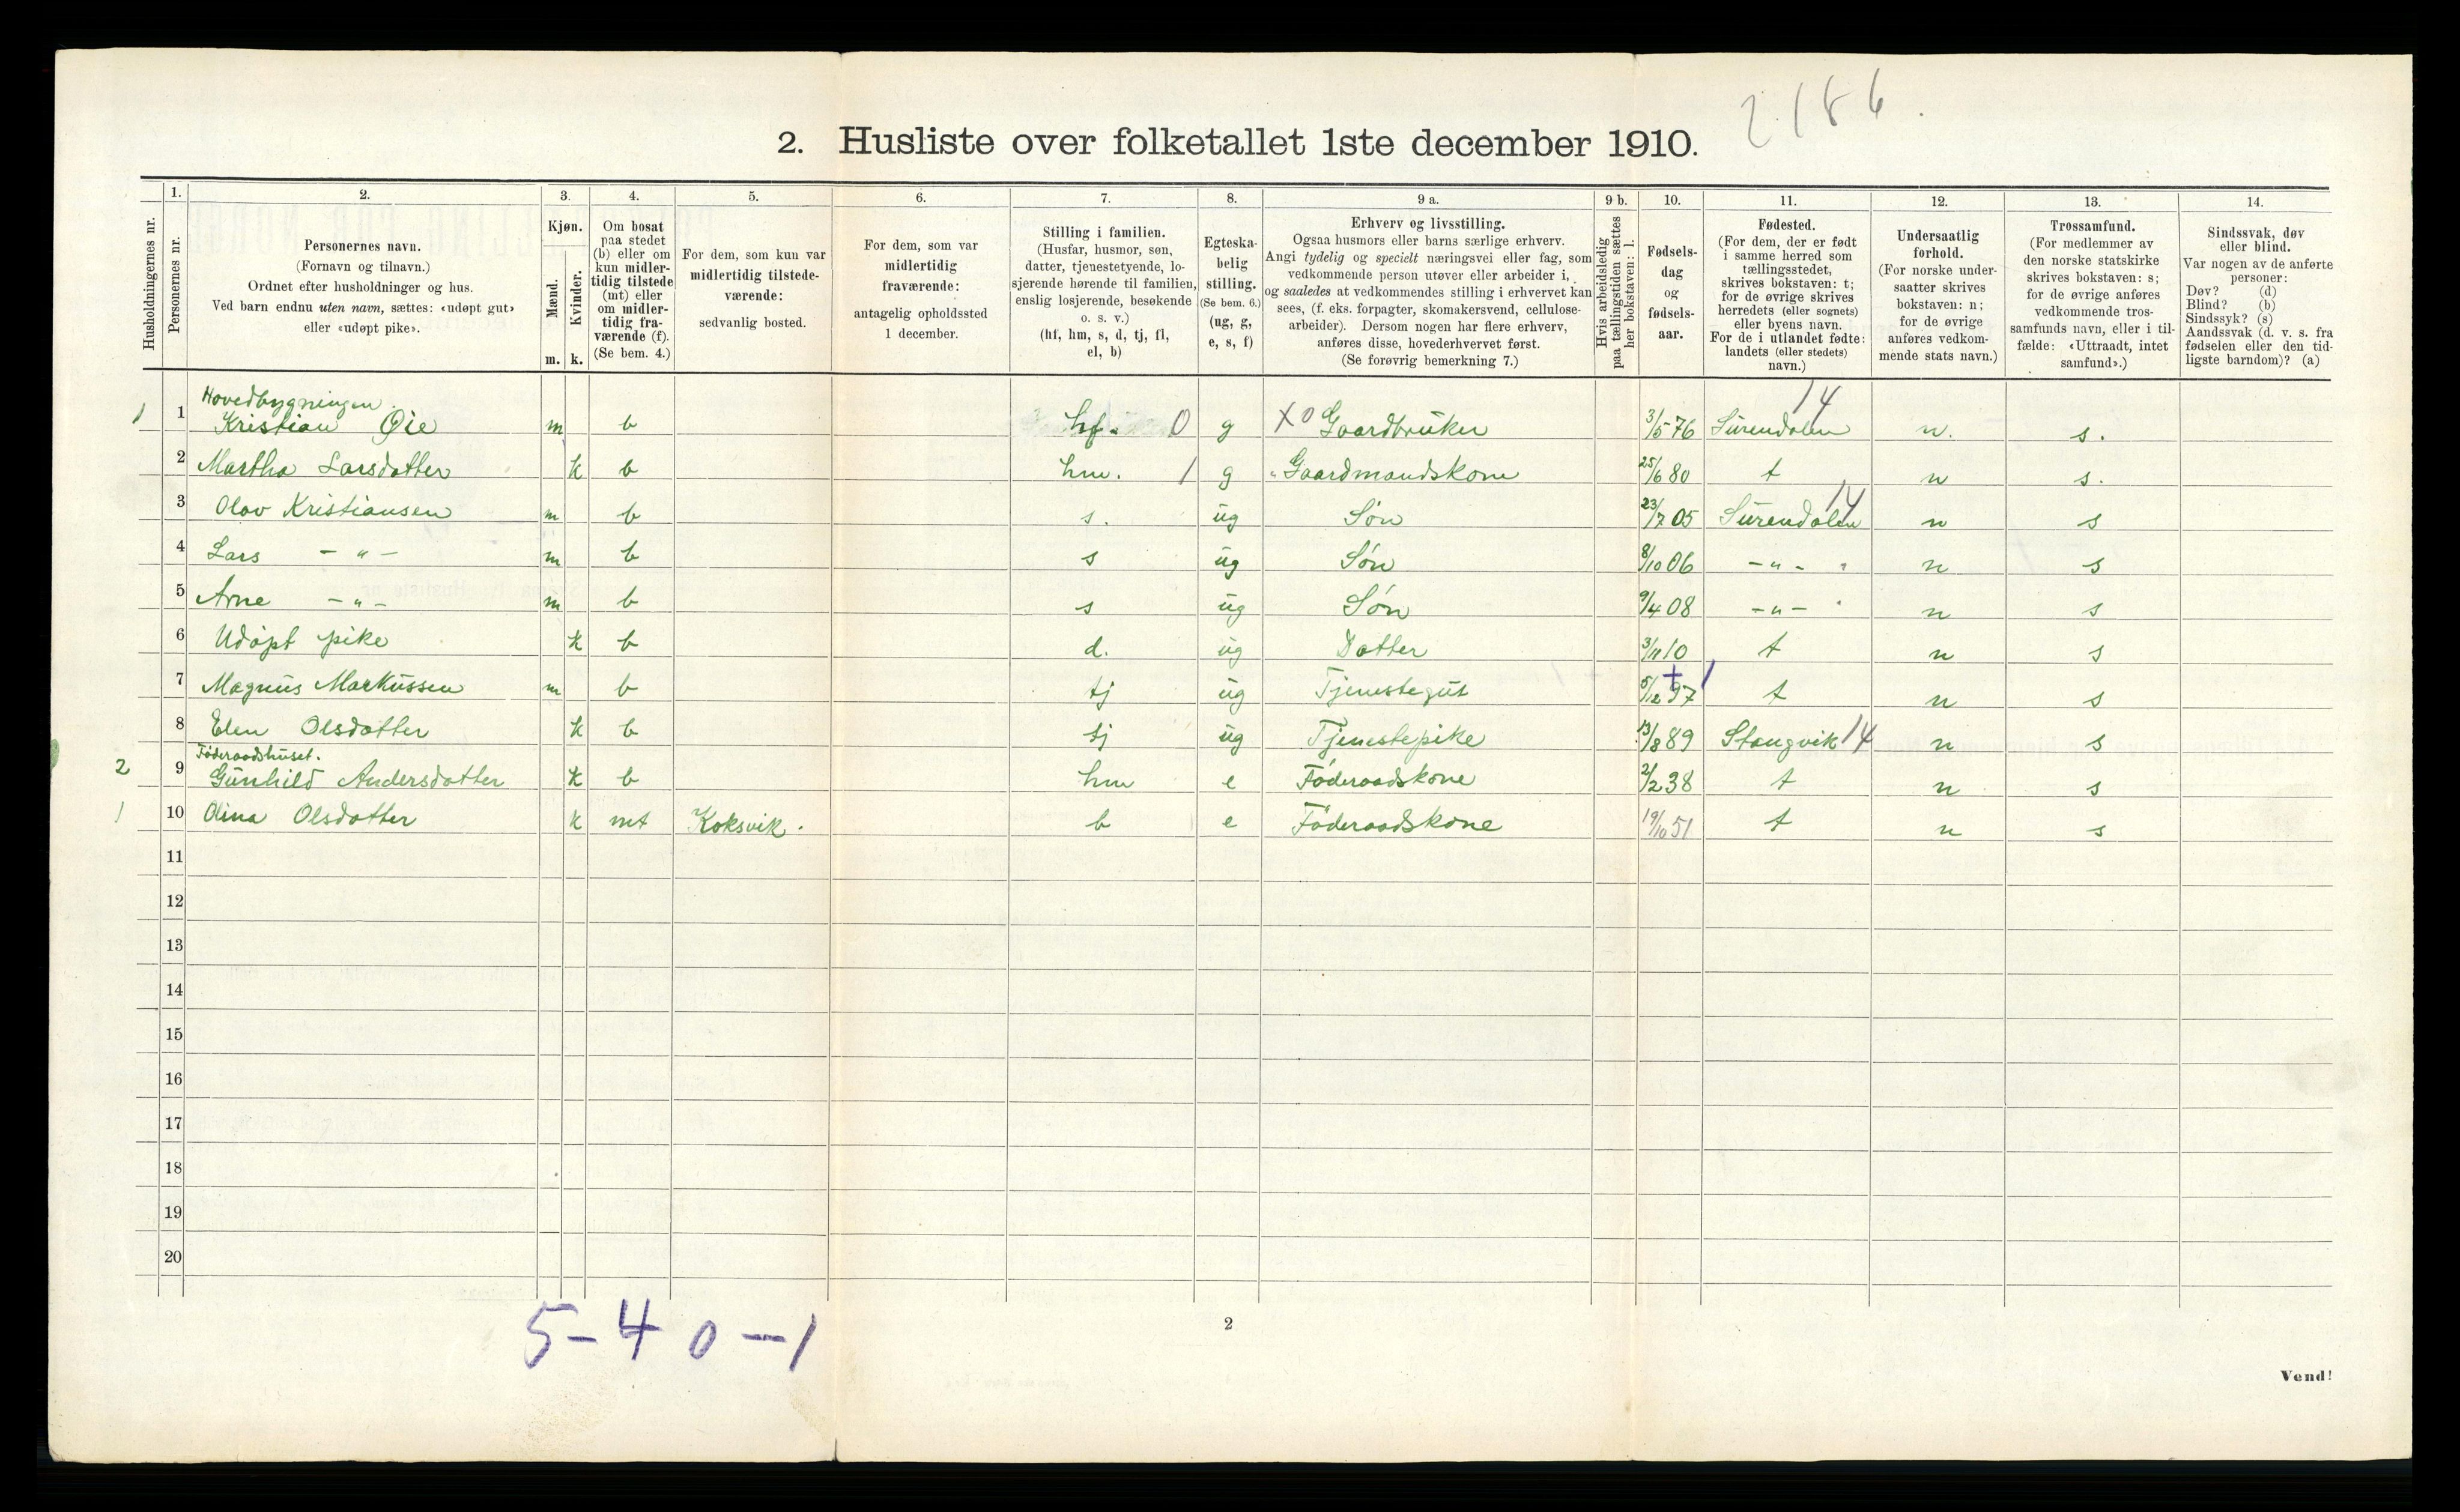 2186.
2. Husliste over folketallet 1ste december 1910.
Husholdningernes nr.
1.
Personernes nr.
2.
Personernes navn.
(Fornavn og tilnavn.)
Ordnet efter husholdninger og hus.
Ved barn endnu uten navn, sættes: «udøpt gut»
eller «udøpt pike».
3.
Kjøn.
Mænd.
Kvinder.
m. k.
4.
Om bosat
paa stedet
(b) eller om
kun midler-
tidig tilstede
(mt) eller
om midler-
tidig fra-
værende (f).
(Se bem. 4.)
5.
For dem, som kun var
midlertidig tilstede-
værende:
sedvanlig bosted.
6.
For dem, som var
midlertidig
fraværende:
antagelig opholdssted
1 december.
7.
Stilling i familien.
(Husfar, husmor, søn,
datter, tjenestetyende, lo-
sjerende hørende til familien,
enslig losjerende, besøkende
o. s. v.)
(hf, hm, s, d, tj, fl,
el, b)
8.
Egteska-
belig
stilling.
(Se bem. 6.)
(ug, g,
e, s, f)
9 a.
Erhverv og livsstilling.
Ogsaa husmors eller barns særlige erhverv.
Angi tydelig og specielt næringsvei eller fag, som
vedkommende person utøver eller arbeider i,
og saaledes at vedkommendes stilling i erhvervet kan
sees, (f. eks. forpagter, skomakersvend, cellulose-
arbeider). Dersom nogen har flere erhverv,
anføres disse, hovederhvervet først.
(Se forøvrig bemerkning 7.)
9 b.
Hvis arbeidsledig
paa tællingstiden sættes
her bokstaven: l.
10.
Fødsels-
dag
og
fødsels-
aar.
11.
Fødested.
(For dem, der er født
i samme herred som
tællingsstedet,
skrives bokstaven: t;
for de øvrige skrives
herredets (eller sognets)
eller byens navn.
For de i utlandet fødte:
landets (eller stedets)
navn.)
12.
Undersaatlig
forhold.
(For norske under-
saatter skrives
bokstaven: n;
for de øvrige
anføres vedkom-
mende stats navn.)
13.
Trossamfund.
(For medlemmer av
den norske statskirke
skrives bokstaven: s;
for de øvrige anføres
vedkommende tros-
samfunds navn, eller i til-
fælde: «Uttraadt, intet
samfund».)
14.
Sindssvak, døv
eller blind.
Var nogen av de anførte
personer:
Døv? (d)
Blind? (b)
Sindssyk? (s)
Aandssvak (d. v. s. fra
fødselen eller den tid-
ligste barndom)? (a)
Hovedbygningen.
1 1 Kristian Øie m b hf. 0 g X0 Gaardbruker 3/5 76 Surendalen 14 n. s.
2 Martha Larsdatter k b hm. 1 g " Gaardmandskone 25/6 80 t n s.
3 Olav Kristiansen m b s. ug Søn 23/7 05 Surendalen 14 n s
4 Lars - " - m b s ug Søn 8/10 06 - " - n s
5 Arne - " - m b s ug Søn 9/4 08 - " - n s
6 Udøpt pike k b d. ug Datter 3/11 10 t n s
7 Magnus Markussen m b tj ug Tjenestegut 5/12 97 + 1 t n s
8 Elen Olsdatter k b tj ug Tjenestepike 13/8 89 Stangvik 14 n s
Føderaadshuset.
2 9 Gunhild Andersdatter k b hm e Føderaadskone 2/2 38 t n s
1 10 Olina Olsdatter k mt Koksvik. b e Føderaadskone 19/10 51 t n s
11
12
13
14
15
16
17
18
19
20
5 - 4 0 - 1
2
Vend!